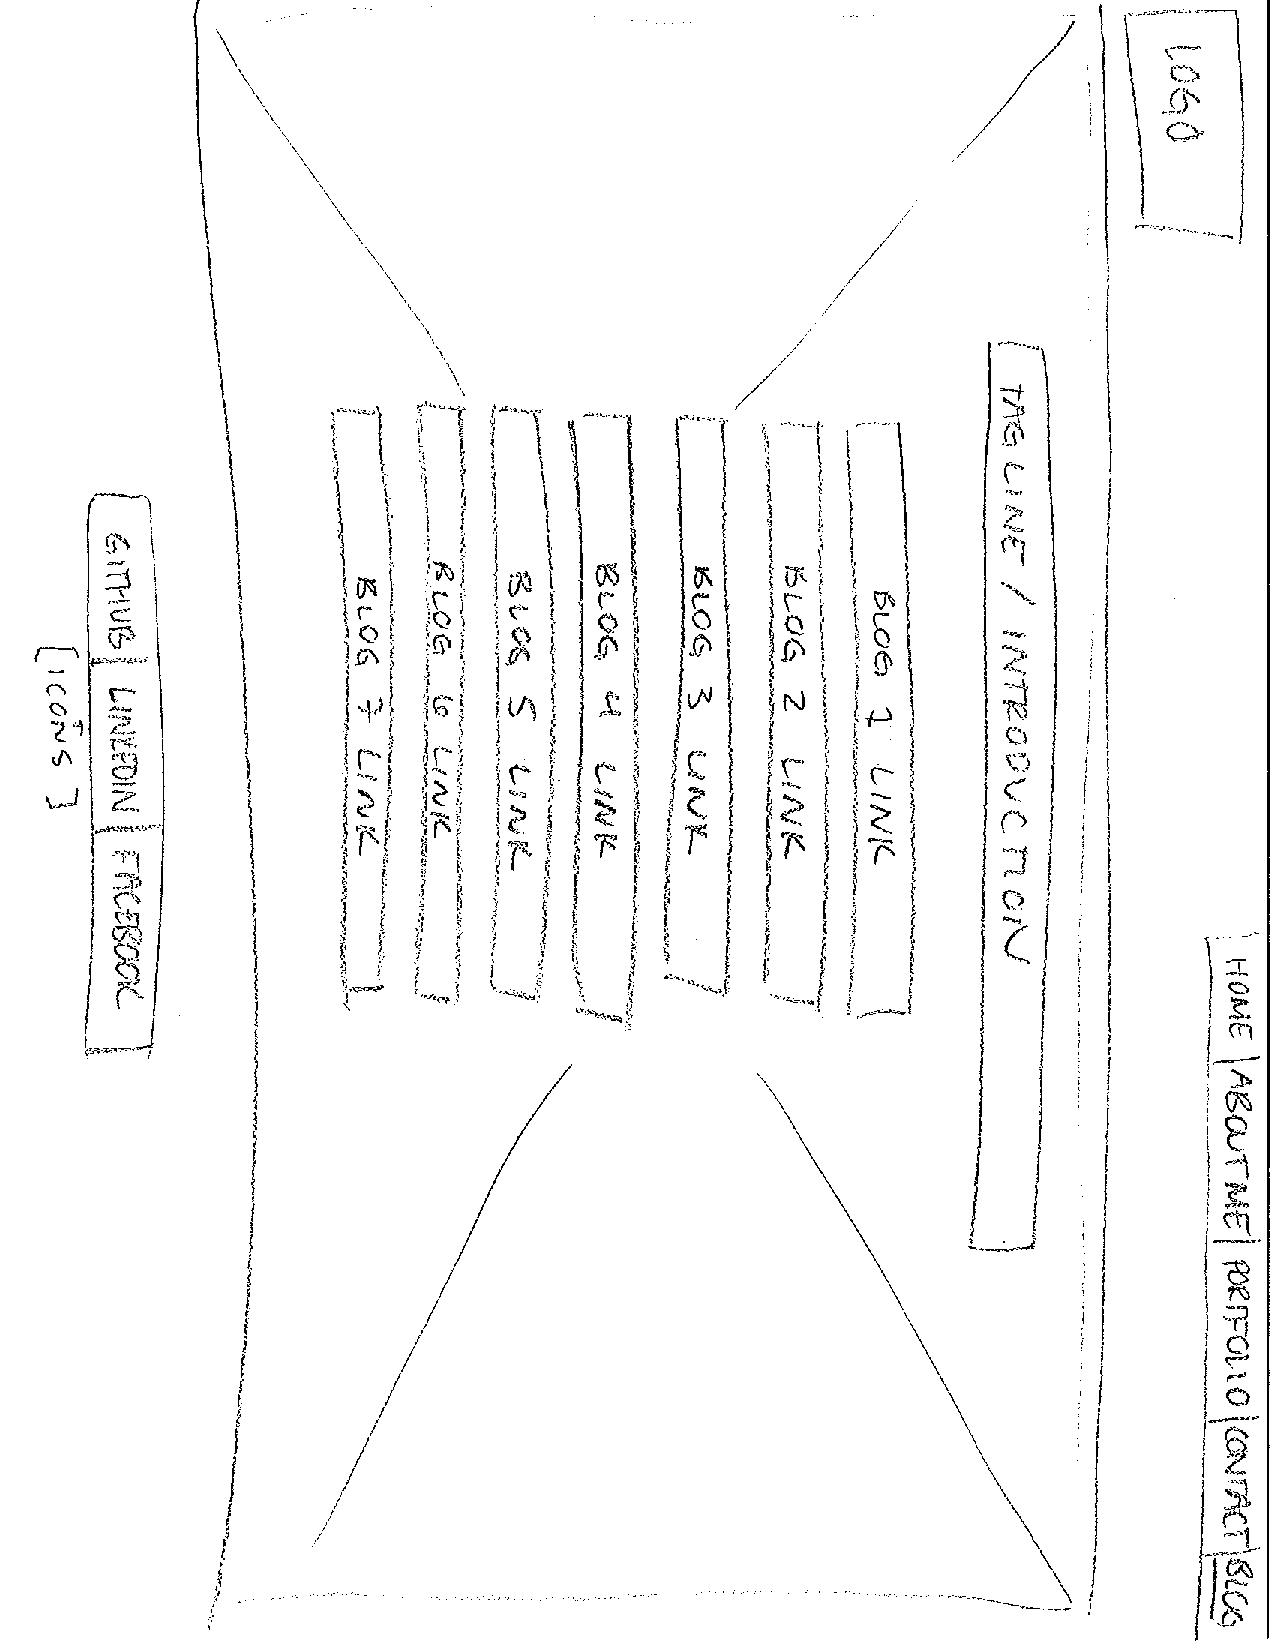 LOGO
HOME | ABOUT ME | PORTFOLIO | CONTACT | BLOG
TAGLINE / INTRODUCTION
BLOG 1 LINK
BLOG 2 LINK
BLOG 3 LINK
BLOG 4 LINK
BLOG 5 LINK
BLOG 6 LINK
BLOG 7 LINK
GITHUB | LINKEDIN | FACEBOOK
[ICONS]